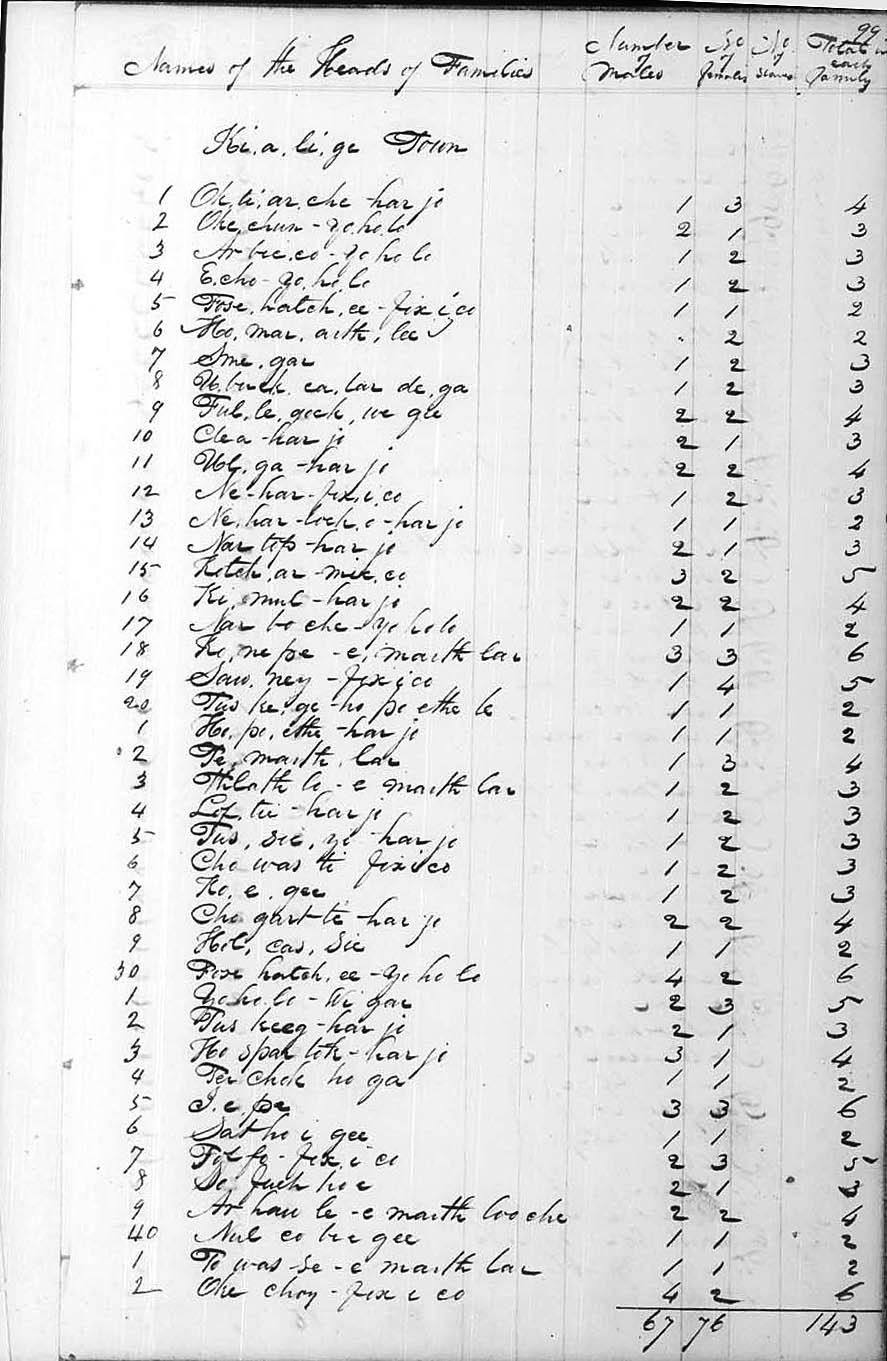 99
Names of the Heads of Families Number of Males No of females No of Slaves Total in each family
Ki. a. li. ge Town
1 Ok. ti. ar. che - har jo 1 3 4
2 Oke. chun - yo. ho. lo 2 1 3
3 Ar bic. co - yo ho lo 1 2 3
4 E. cho - yo. ho. lo 1 2 3
5 Fose. hatch. ee - fix i co 1 1 2
6 Ho. mar. arth. lee . 2 2
7 Sme. gar 1 2 3
8 1 2 3
9 Ful. le. 2 2 4
10 Cle a - har jo 2 1 3
11 ga - har jo 2 2 4
12 Ne - har - fix. i. co 1 2 3
13 Ne. har - lock. o - har jo 1 1 2
14 Nar top - har jo 2 1 3
15 Kotch. ar - mic. co 3 2 5
16 Ki. mul - har jo 2 2 4
17 Nar bo che - yo ho lo 1 1 2
18 Ko. ne pe - e. marth lar 3 3 6
19 Saw. ney - fix i co 1 4 5
20 Tus ke. ge - ho po ethe le 1 1 2
1 Ho. po. ethe - har jo 1 1 2
2 marth. lar 1 3 4
3 Thlath lo - e marth lar 1 2 3
4 har jo 1 2 3
5 Tus. sic. yo - har jo 1 2 3
6 Cho was ti fix i co 1 2 3
7 Ko. e. gee 1 2 3
8 Cho gart te - har jo 2 2 4
9 Hol. cas. sic 1 1 2
30 Fose hatch. ee - yo ho lo 4 2 6
1 Yo ho. lo - gar 2 3 5
2 Tus keeg - har jo 2 1 3
3 Ho spar tok - har jo 3 1 4
4 chok ho ga 1 1 2
5 I. e. pe 3 3 6
6 Sat ho i gee 1 1 2
7 fix. i co 2 3 5
8 So. fuck ho e 2 1 3
9 Ar hau le - e marth loo che 2 2 4
40 Nul co bee gee 1 1 2
1 To was se - e marth lar 1 1 2
2 Oke choy - fix i co 4 2 6
67 76 143